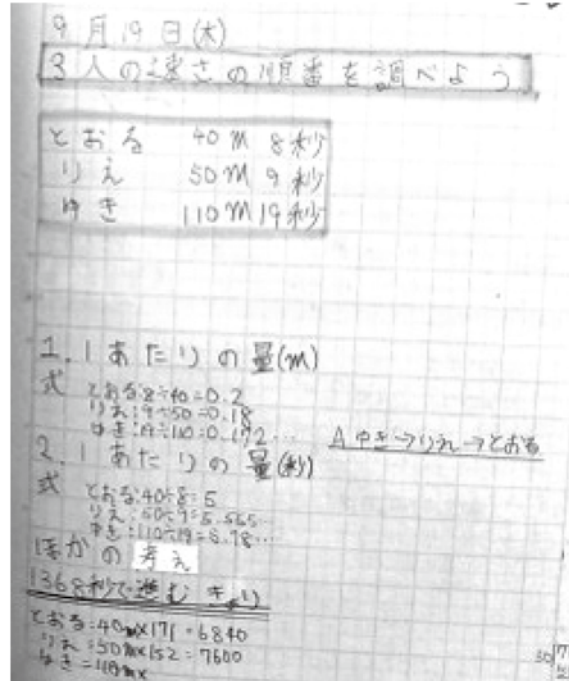 9月19日(木)
3人の速さの順番を調べよう
とおる 40m 8秒
りえ 50m 9秒
ゆき 110m 19秒
1. 1あたりの量(m)
式 とおる:8÷40=0.2
りえ:9÷50=0.18
ゆき:19÷110=0.172… A ゆき→りえ→とおる
2. 1あたりの量(秒)
式 とおる:40÷8=5
りえ:50÷9=5.555…
ゆき:110÷19=5.78…
ほかの考え
1368秒で進むきょり
とおる:40m×171=6840
りえ:50m×152=7600
ゆき=110m×